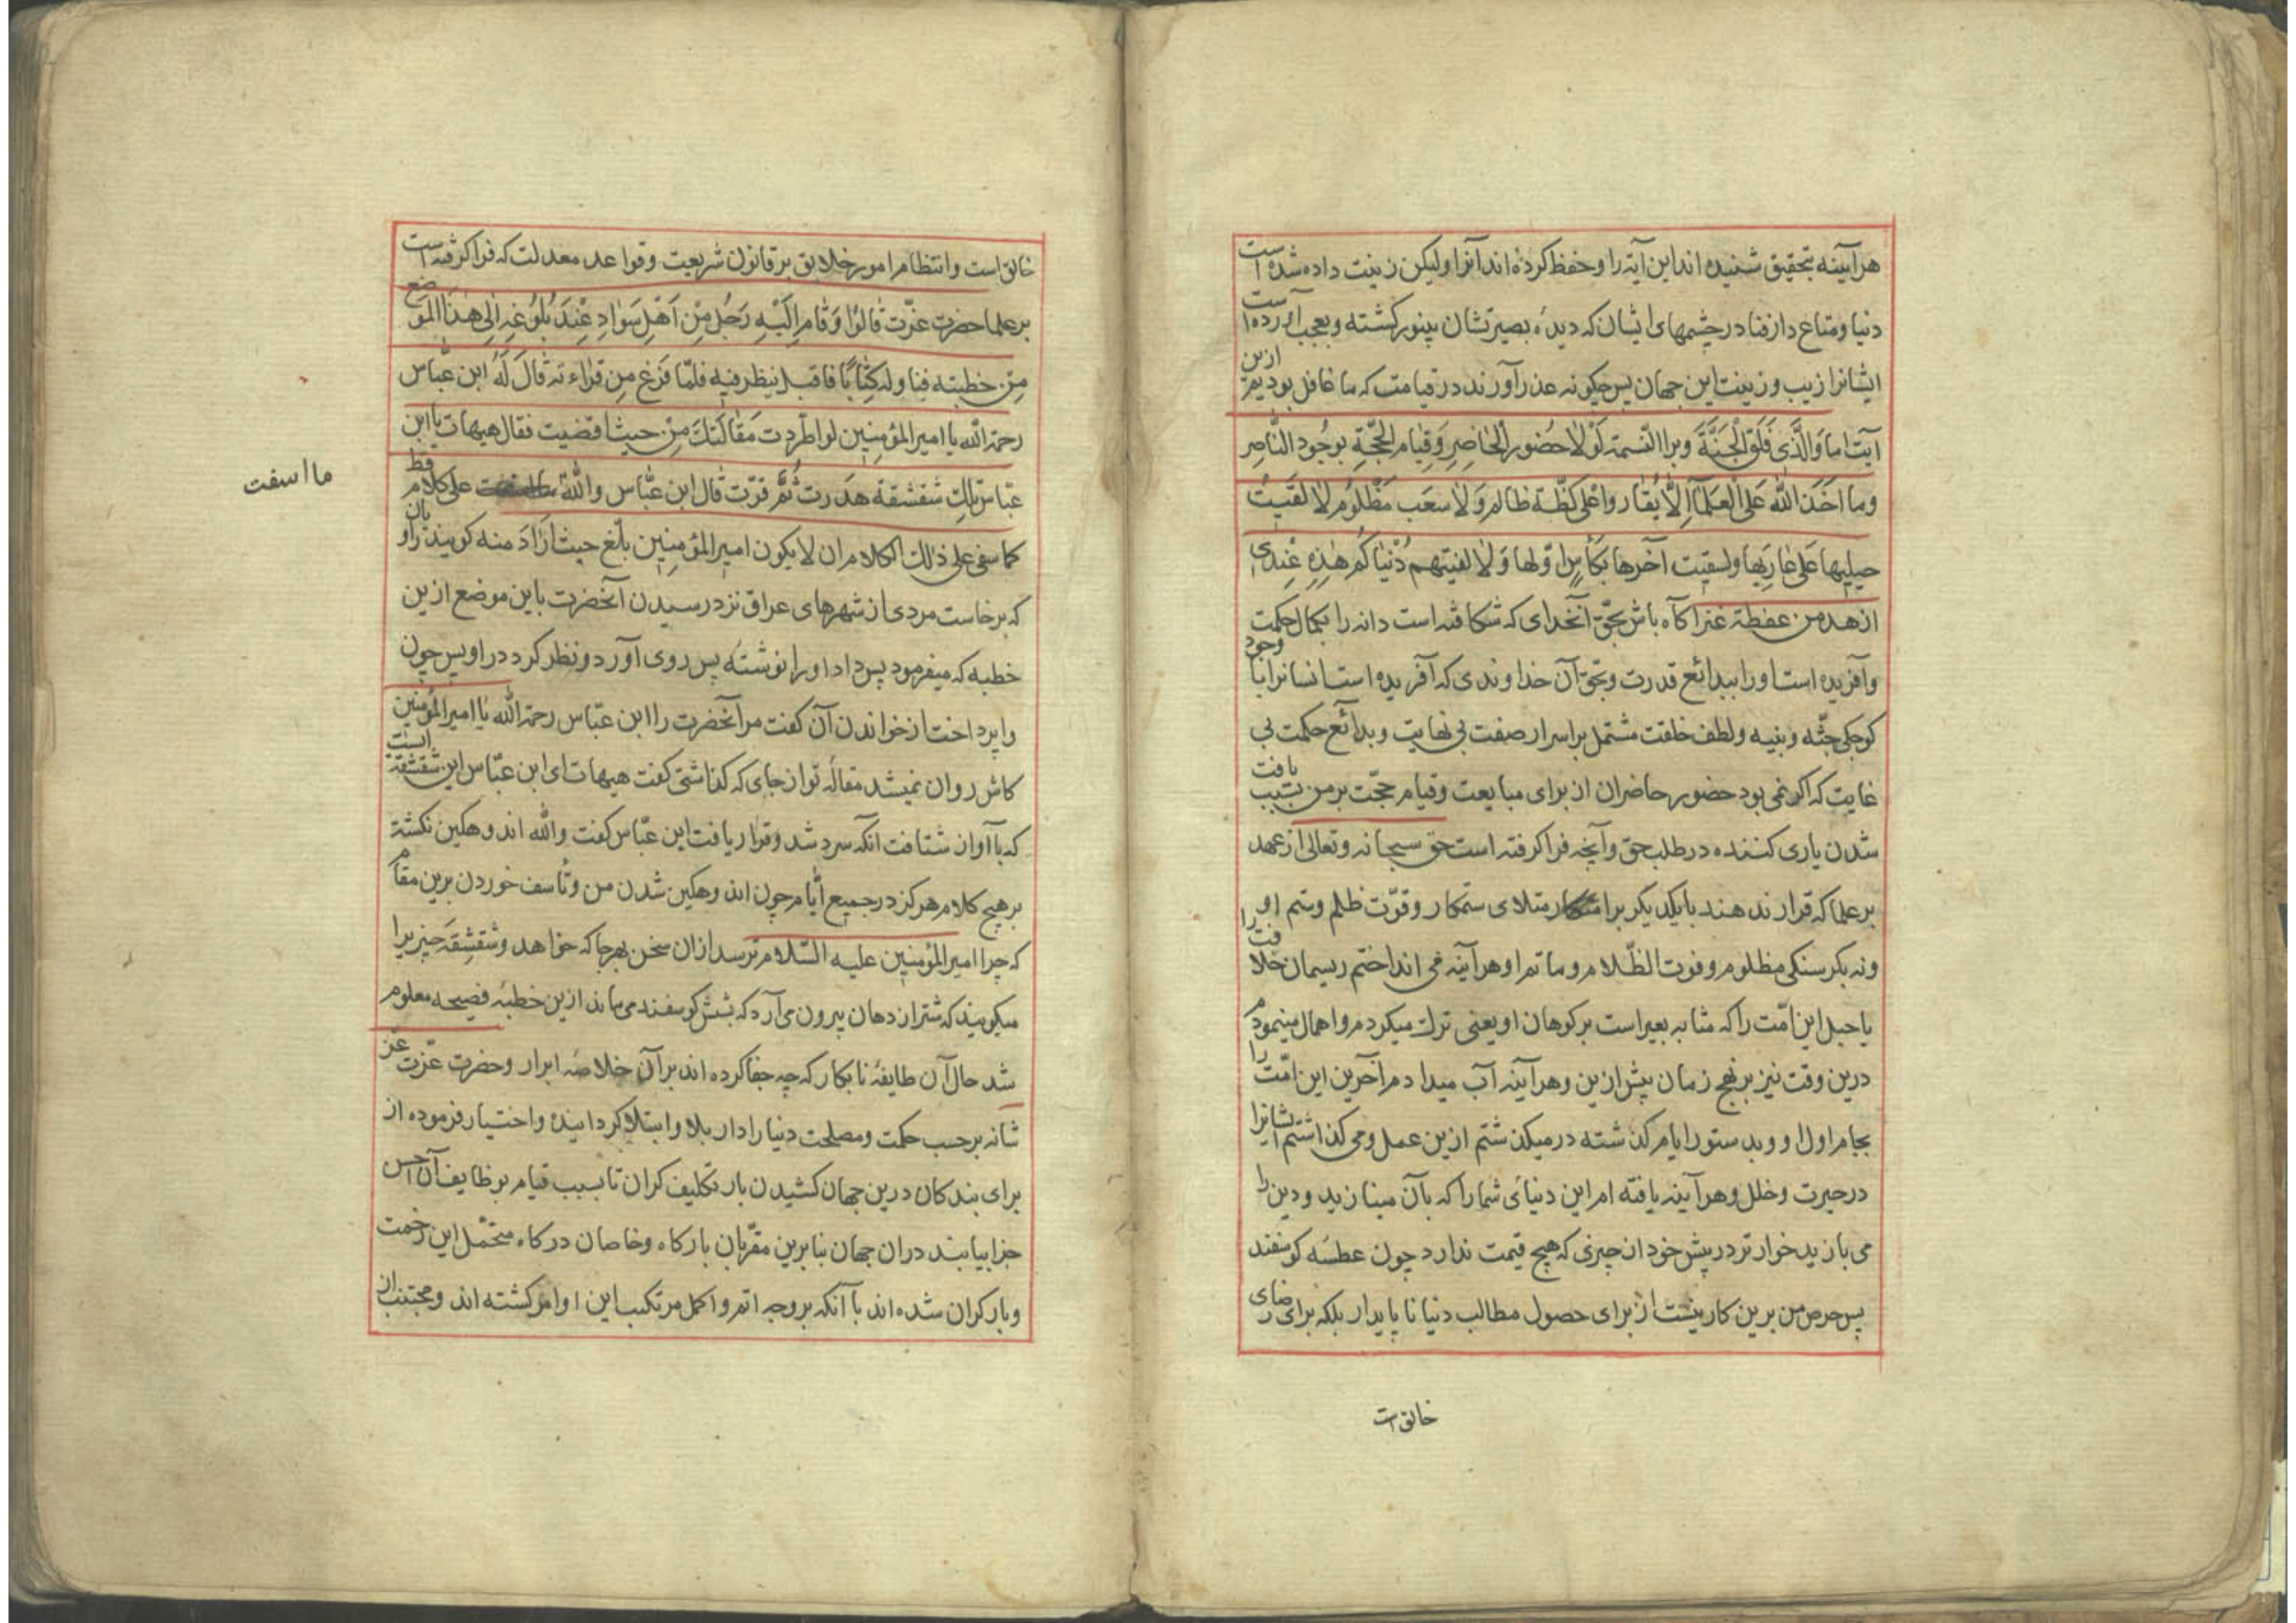 هرآینه بتحقیق شنیده اند این آیة را و حفظ کرده اند آنرا ولیکن زینت داده شده است
دنیا و متاع دار فنا در چشمهای ایشان که دیدۀ بصیرتشان بینور کشته و بعجب آورده است
ایشانرا زیب و زینت این جهان پس چکونه عذر آورند در قیامت که ما غافل بودیم ازین
آیت اما وَالَّذی فَلَقَ الْحَبَّةَ وبرا النَّسمة لَوْلا حُضور الْحاضِرِ وَقِیام الْحُجَّةِ بوجُود النَّاصِرِ
وما اَخَذَ الله عَلَی الْعلماَۤ اِلّا یُقار واعلی کظّة ظالم وَلاسعَب مَظْلُوم لالقَیتُ
حبلِها عَلی غارِبها ولسقیت آخرها بکأس اوّلها وَلالفیتهم دُنْیاکُم هٰذِهِ عِنْدی
ازهد من عفطة عنز اکاه باش بحقّ آنخدای که شکافته است دانه را بکمال حکمت
وآفریده است اورا ببدائع قدرت وبحق آن خداوندی که آفریده است انسانرا با وجود
کوچکی جثّه وبنیه ولطف خلقت مشتمل بر اسرار صفت بی نهایت وبدائع حکمت بی
غایت که اکر نمی بود حضور حاضران از برای مبایعت وقیام حجّت بر من بسبب یافت
شدن یاری کننده در طلب حق وآنچه فراکرفته است حق سبحانه وتعالی از عهد
بر علما که قرار ندهند بایکدیکر بر امتلای ستمکار وقوّت ظلم وستم او را
ونه بکرسنکی مظلوم وفوت الظّلام وماتم او هرآینه می انداختم ریسمان خلافت
یا حبل این امّت راکه مشابه بعیر است بر کوهان او یعنی ترك میکردم واهمال مینمودم
درین وقت نیز بر نهج زمان پیش ازین وهرآینه آب میدادم آخرین این امّت را
بجام اول او وبدستور ایام کذشته در میکذشتم ازین عمل ومی کذاشتم ایشانرا
در حیرت وخلل وهرآینه یافته ام این دنیای شما راکه بآن مینازید ودین را
می بازید خوارتر در پیش خود از چیزی که هیچ قیمت ندارد چون عطسه کوسفند
پس حرص من برین کار نیست از برای حصول مطالب دنیا ناپایدار بلکه برای رضای
خالق است
خالق است وانتظام امور خلایق بر قانون شریعت وقواعد معدلت که فراکرفته است
بر علما حضرت عزّت قالوُا وَقام اِلَیْهِ رَجُل مِنْ اَهْلِ سَوادِ عِنْدَ بُلُوغِهِ اِلی هذَا المَوضع
مِن خطبته فناوله کِتٰاباً فاقبل ینظر فیه فلمّا فَرَغ مِن قراءته قالَ لَهُ ابن عبّاس
رحمة الله یا امیر المؤمنین لو اطّردت مَقالَتُكَ مِنْ حیث افضیت فقال هیهات یا ابن
عبّاس تلك شقشقة هَدَرت ثُمّ قرّت قال ابن عبّاس والله علی کلام قط
ما اسفت
کاسفی علی ذلك الکلام ان لا یکون امیر المؤمنین بلّغ حیث اَرٰادَ منه کویند راویان
که برخاست مردی از شهرهای عراق نزد رسیدن آنحضرت باین موضع ازین
خطبه که میفرمود پس داد او را نوشته پس روی آورد ونظر کرد در او پس چون
واپرداخت از خواندن آن کفت مر آنحضرت را ابن عبّاس رحمة الله یا امیر المؤمنین
کاش روان میشد مقالۀ تو از جای که کذاشتی کفت هیهات ای ابن عبّاس این شقشقة ایست
که باآوان شتافت آنکه سرد شد وقرار یافت ابن عبّاس کفت والله اندوهکین نکشته
بر هیچ کلام هرکز در جمیع ایّام چون اندوهکین شدن من وتأسف خوردن برین مقام
که چرا امیر المؤمنین علیه السّلام نرسد ازان سخن بهرجا که خواهد وشقشقه چیزیرا
میکویند که شتر از دهان بیرون می آرد که بشش کوسفند می ماند ازین خطبه فصیحه معلوم
شد حال آن طایفۀ نابکار که چه جفا کرده اند بر آن خلاصۀ ابرار وحضرت عزّت عزّ
شانه بر حسب حکمت ومصلحت دنیا را دار بلا وابتلا کردانیده واختیار فرموده از
برای بندکان درین جهان کشیدن بار تکلیف کران تا بسبب قیام بوظایف آن احسن
جزا بیابند دران جهان بنابرین مقرّبان بارکاه وخاصان درکاه متحمّل این زحمت
وبار کران شده اند باآنکه بروجه اتم واکمل مرتکب این اوامر کشته اند ومجتنب از